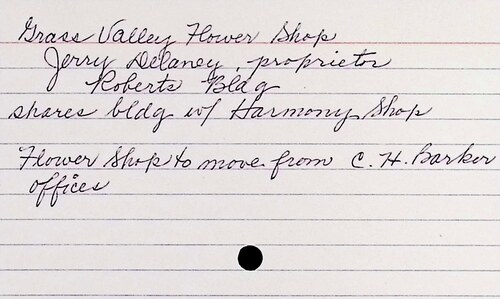 Grass Valley Flower Shop
Jerry Delaney, proprietor
Roberts Bldg
shares bldg w/ Harmony Shop
Flower Shop to move from C. H. Barker
offices